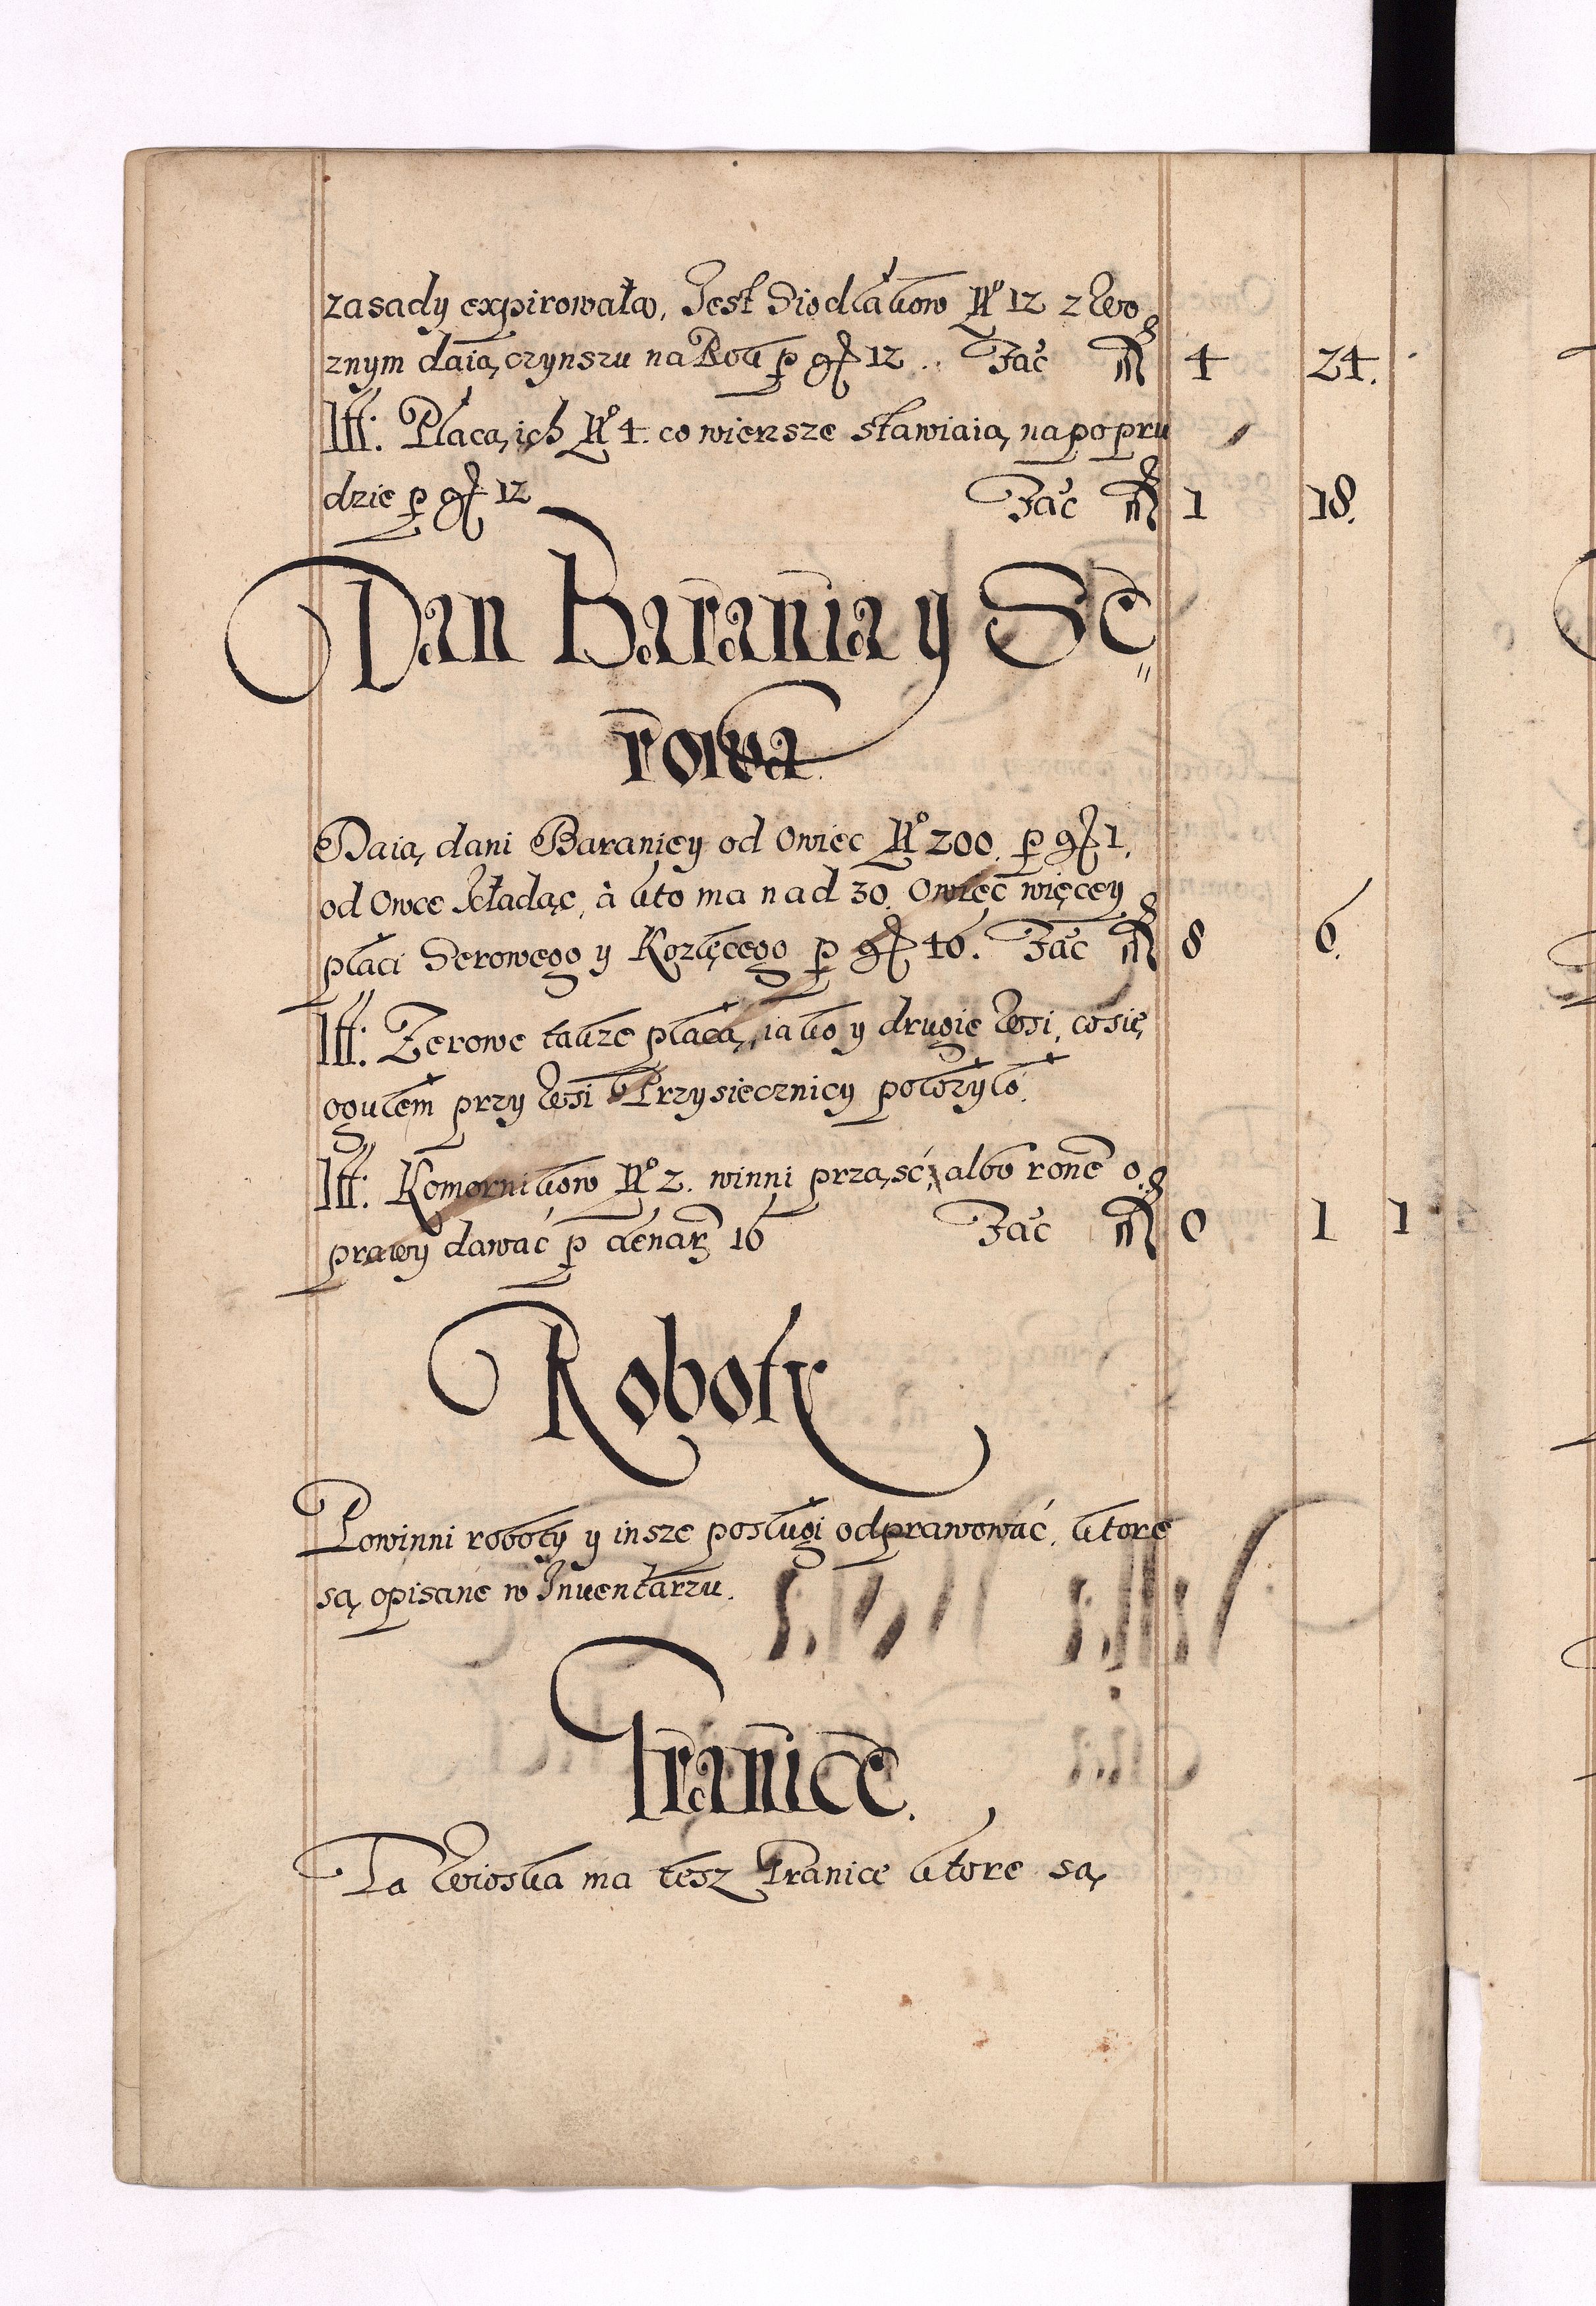 zasady expirowała, Jest Siodlakow No 12 z Wo
znym daią czynszu na Rok p gr 12. Fac fl 4 24.
Itt: Placą ich No 4. co wiersze stawiaią na popru
dzie p gr 12 Fac fl 1 18.
Dan Barania y Se"
rowa.
Daią dani Baraniey od Owiec No 200. p gr 1.
od Owce kładąc, à kto ma nad 30. Owiec więcey
płaci Serowego y Kozlęcego p gr 46. Fac fl 8 6.
Itt: Zerowe takze placą, iako y drugie Wsi, co się
ogulem przy Wsi Przysiecznicy polozylo.
Itt: Komornikow No 2. winni prząść, albo ronē o
prawy dawać p denarz 16 Fac fl 0 1 1
Roboty
Powinni roboty y insze poslugi odprawować, ktore
są opisane w Inuentarzu.
Granice.
Ta Wioska ma tesz Granice ktore są